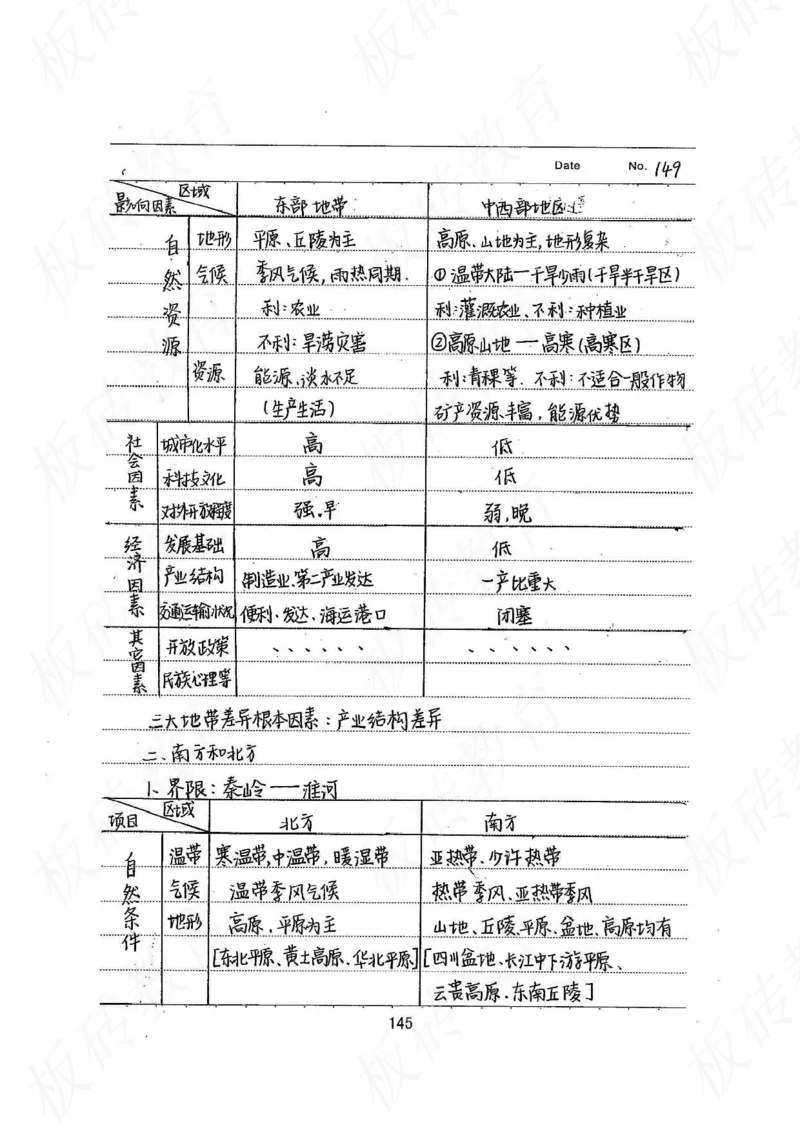 Date No. 149
影响因素 区域 东部地带 中西部地区
自然资源 地形 平原、丘陵为主 高原、山地为主,地形复杂
气候 季风气候,雨热同期. ①温带大陆一干旱少雨(干旱半干旱区)
利:农业 利:灌溉农业、不利:种植业
不利:旱涝灾害 ②高原山地——高寒(高寒区)
资源 能源、淡水不足 利:青稞等. 不利:不适合一般作物
(生产生活) 矿产资源丰富,能源优势
社会因素 城市化水平 高 低
科技文化 高 低
对外开放程度 强.早 弱,晚
经济因素 发展基础 高 低
产业结构 制造业、第二产业发达 一产比重大
交通运输状况 便利、发达、海运港口 闭塞
其它因素 开放政策 、、、、、、 、、、、、、
民族心理等
三大地带差异根本因素:产业结构差异
二、南方和北方
1、界限:秦岭——淮河
项目 区域 北方 南方
自然条件 温带 寒温带,中温带,暖湿带 亚热带、少许热带
气候 温带季风气候 热带季风、亚热带季风
地形 高原、平原为主 山地、丘陵、平原、盆地、高原均有
[东北平原、黄土高原、华北平原] [四川盆地、长江中下游平原、
云贵高原、东南丘陵]
145
板砖教育